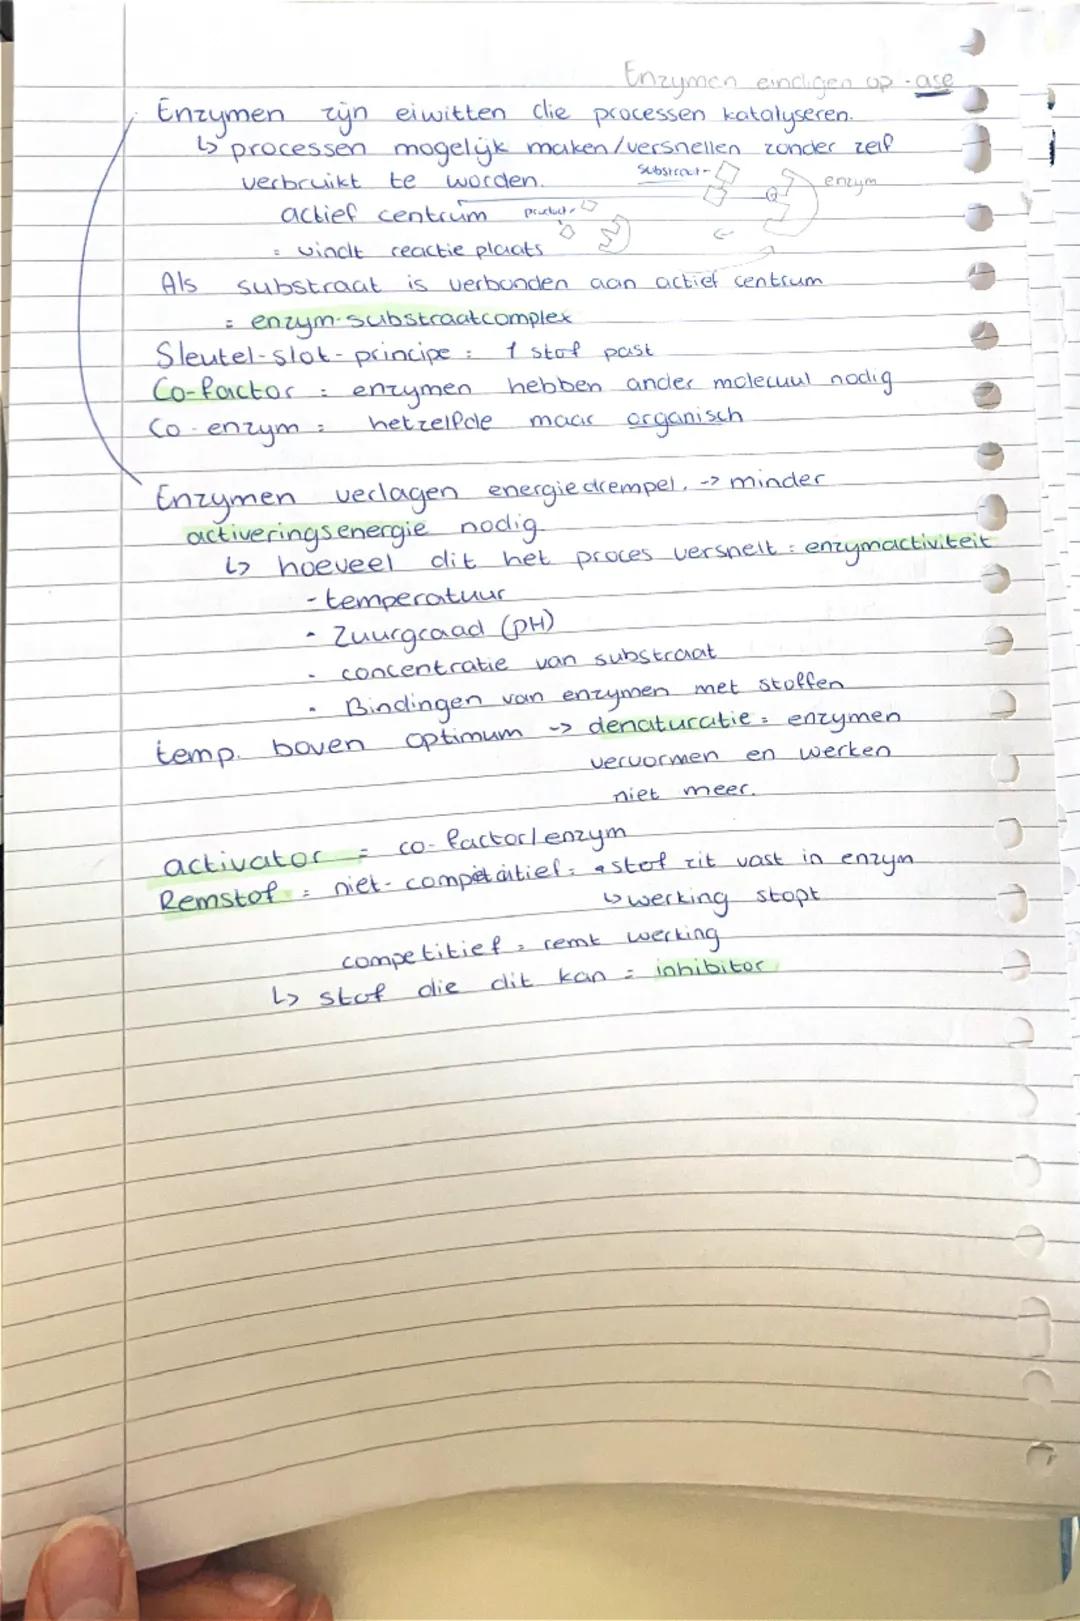 Enzymen eindigen op -ase
Enzymen zijn eiwitten die processen katalyseren.
↳ processen mogelijk maken/versnellen zonder zelf
verbruikt te worden.
substraat
enzym
actief centrum
product
= vindt reactie plaats
Als substraat is verbonden aan actief centrum
= enzym-substraatcomplex
Sleutel-slot-principe: 1 stof past
Co-factor: enzymen hebben ander molecuul nodig
Co-enzym: hetzelfde maar organisch
Enzymen verlagen energiedrempel. -> minder
activeringsenergie nodig
↳ hoeveel dit het proces versnelt: enzymactiviteit
- temperatuur
- Zuurgraad (pH)
- concentratie van substraat
- Bindingen van enzymen met stoffen
temp. boven optimum -> denaturatie = enzymen
vervormen en werken
niet meer.
activator = co-factor/enzym
Remstof = niet-competitief: stof zit vast in enzym
↳ werking stopt
competitief = remt werking
↳ stof die dit kan = inhibitor